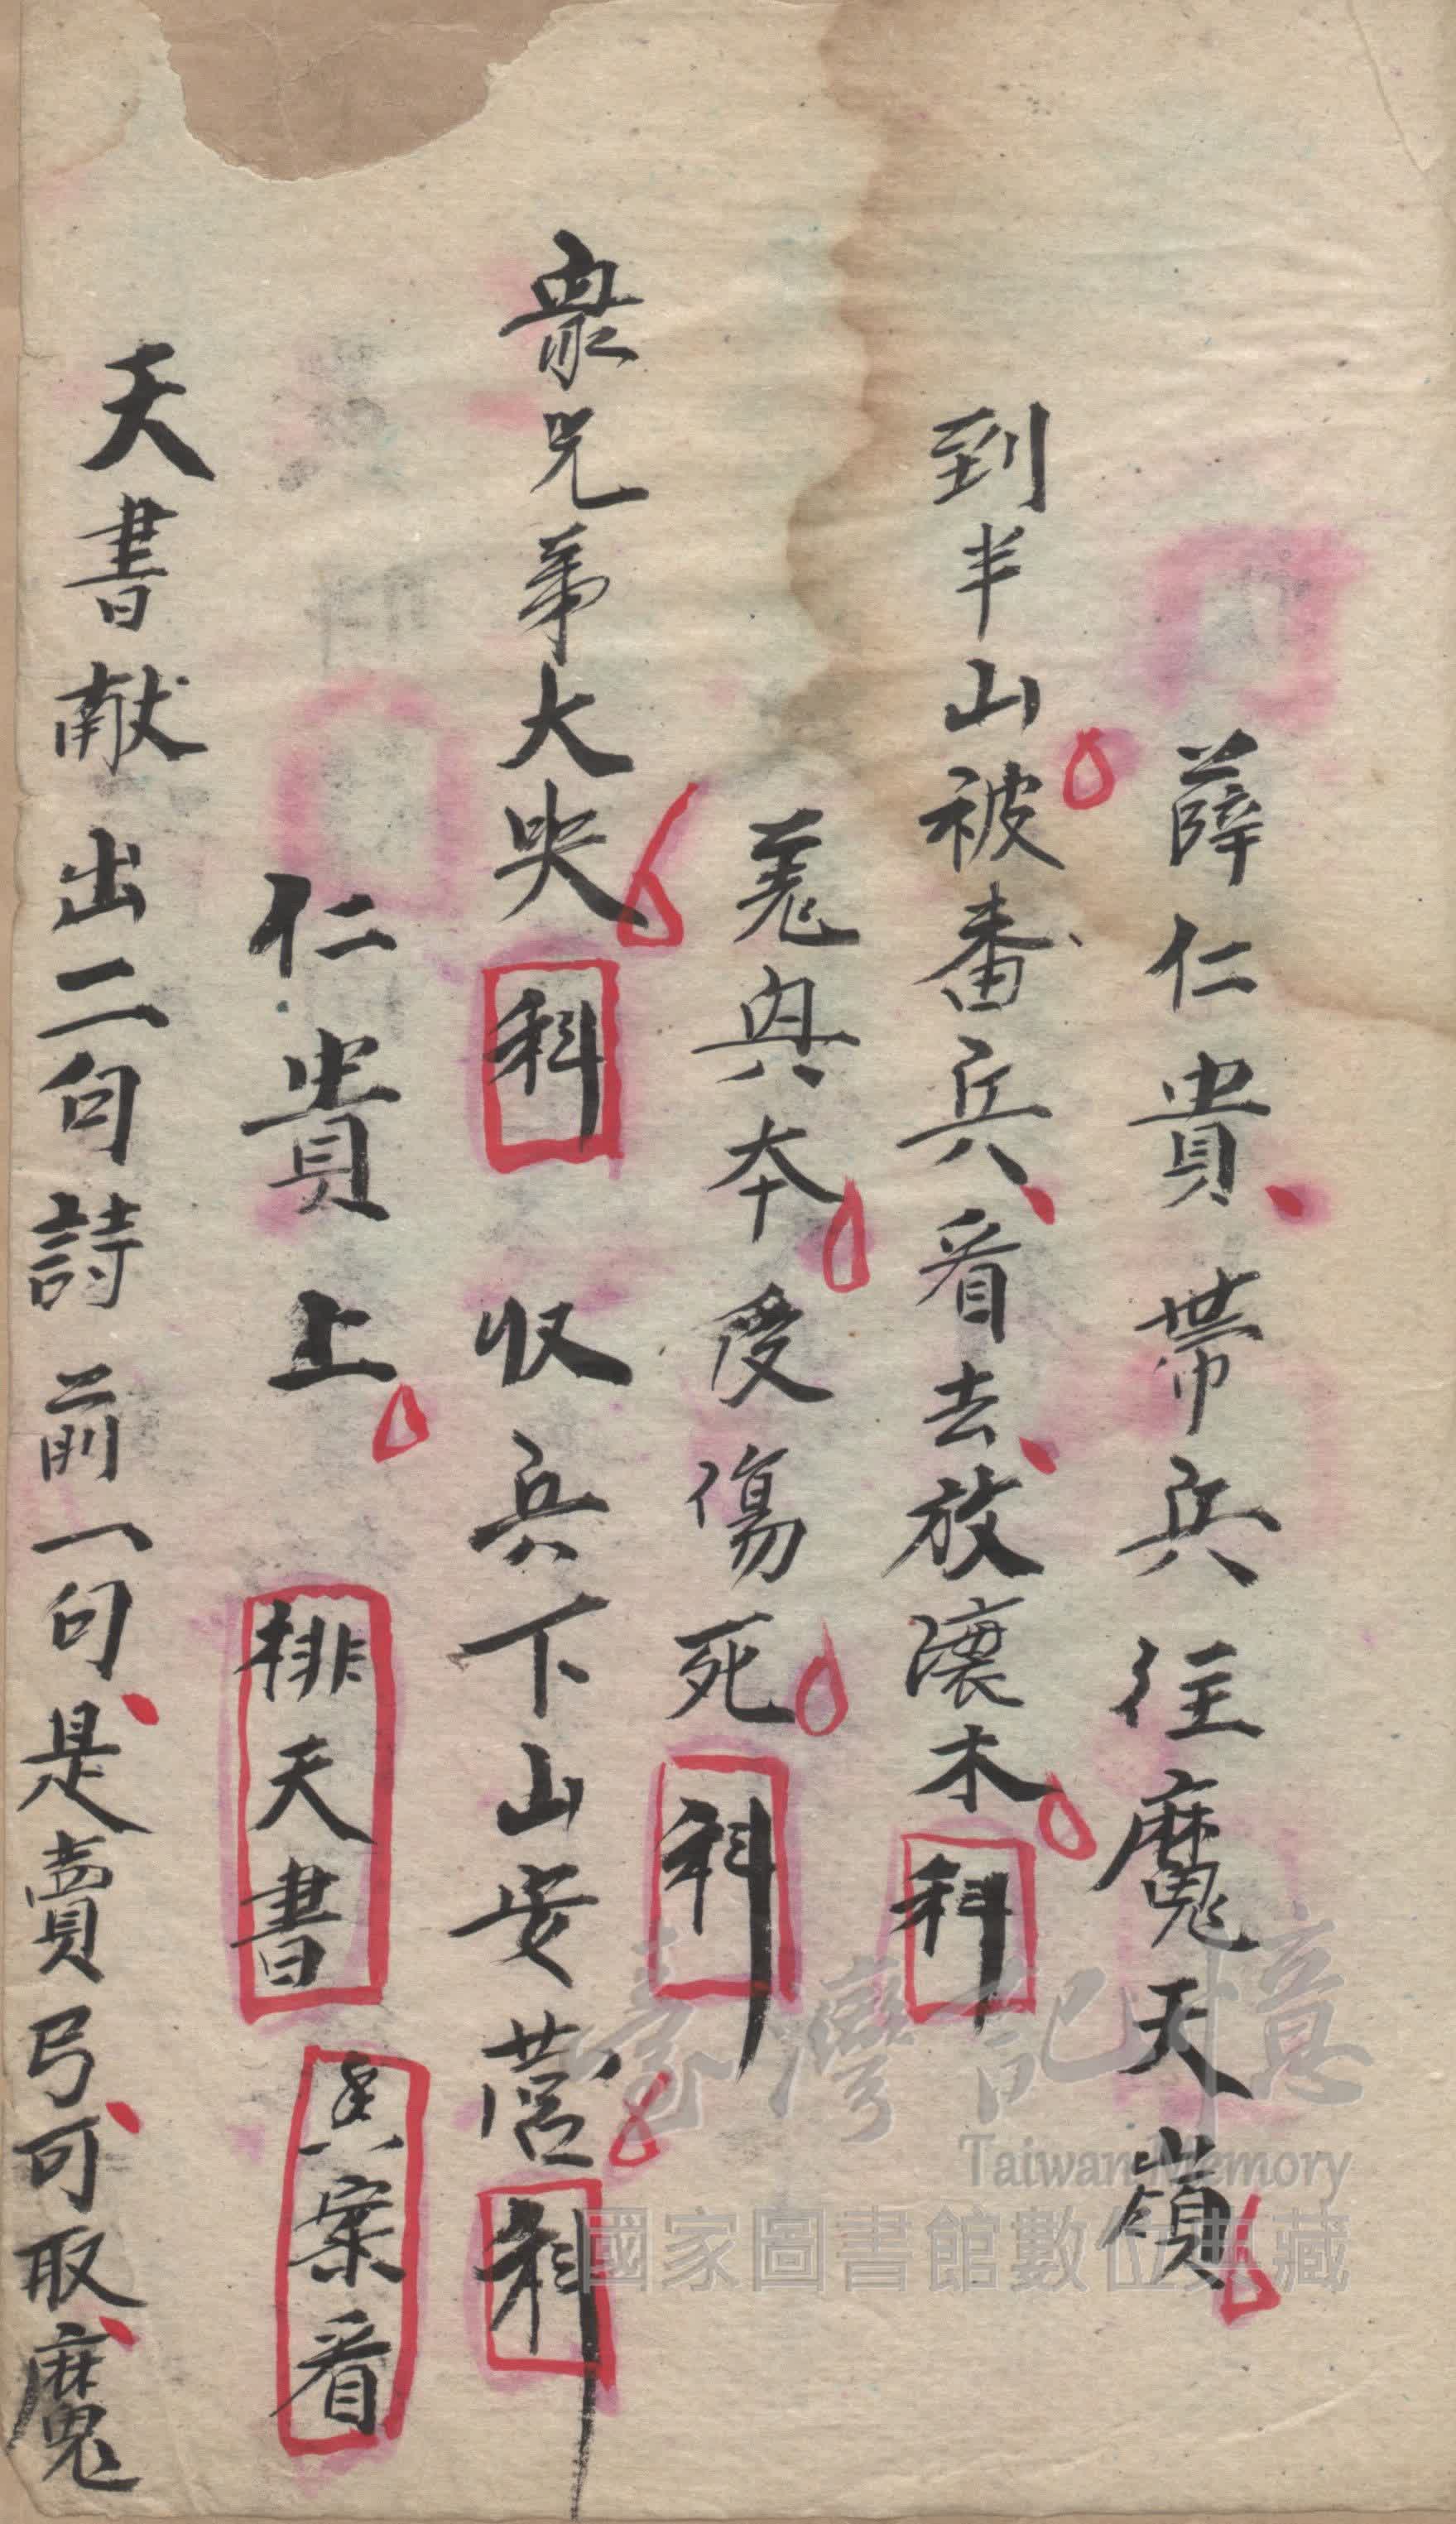 薛仁貴帶兵往魔天嶺
到半山被番兵看去放瀼木科
羗興本受傷死科
衆兄弟大哭科收兵下山安营科
仁貴上排天書香案看
天書献出二句詩前一句是賣弓可取魔
臺灣記憶
Taiwan Memory
國家圖書館數位典藏